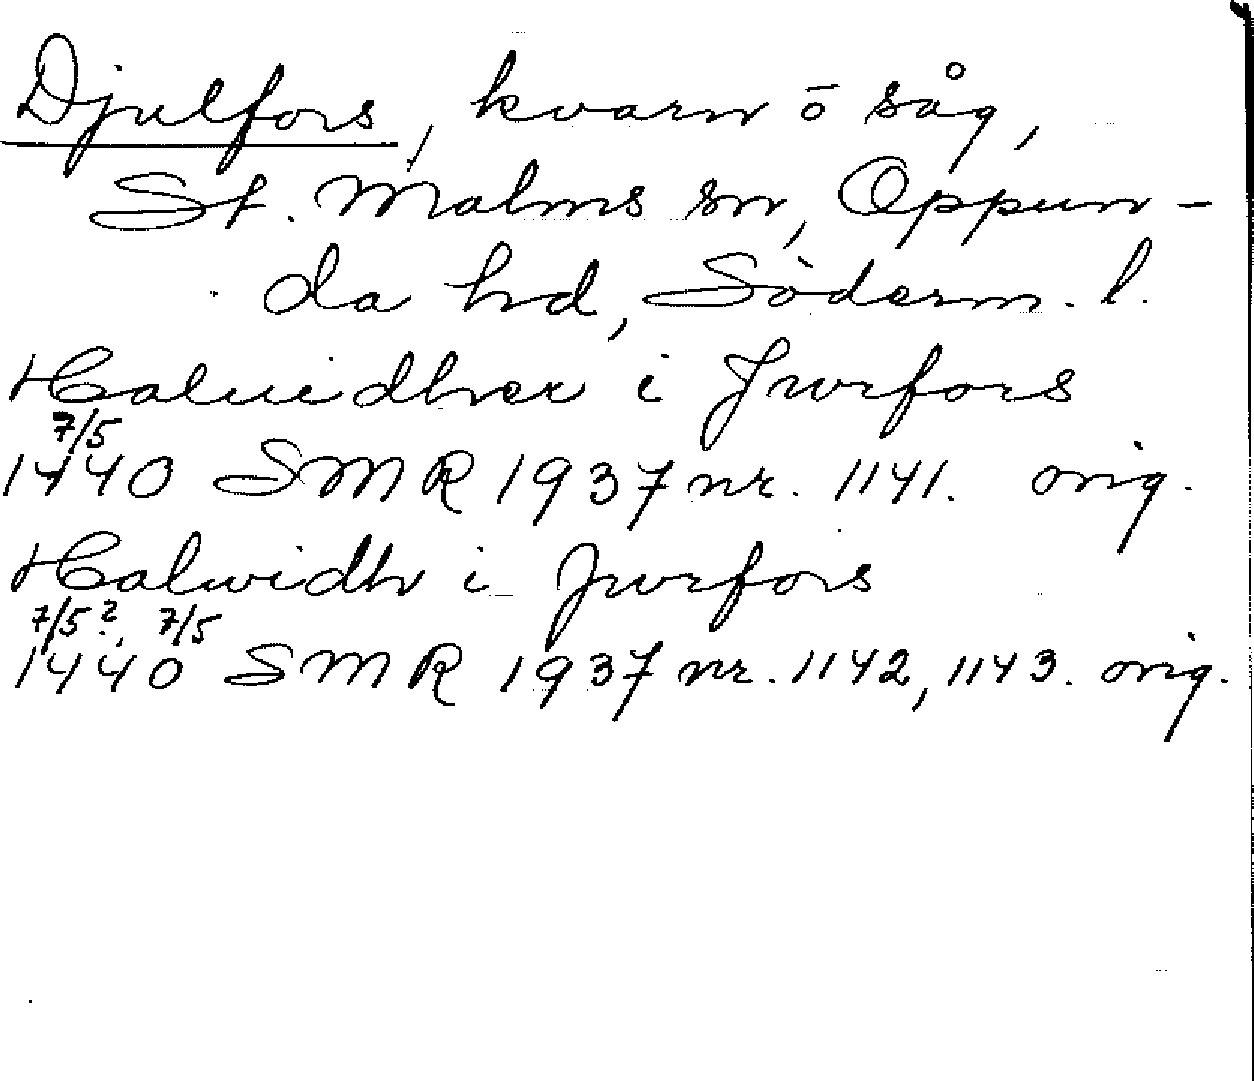 Djulfors, kvarn o såg,
St. Malms sn, Oppun-
da hd, Söderm. l.
Haluidher i Jwrfors
7/5
1440 SMR 1937 nr. 1141. orig.
Halwidh i Jwrfors
7/5?, 7/5
1440 SMR 1937 nr. 1142, 1143. orig.